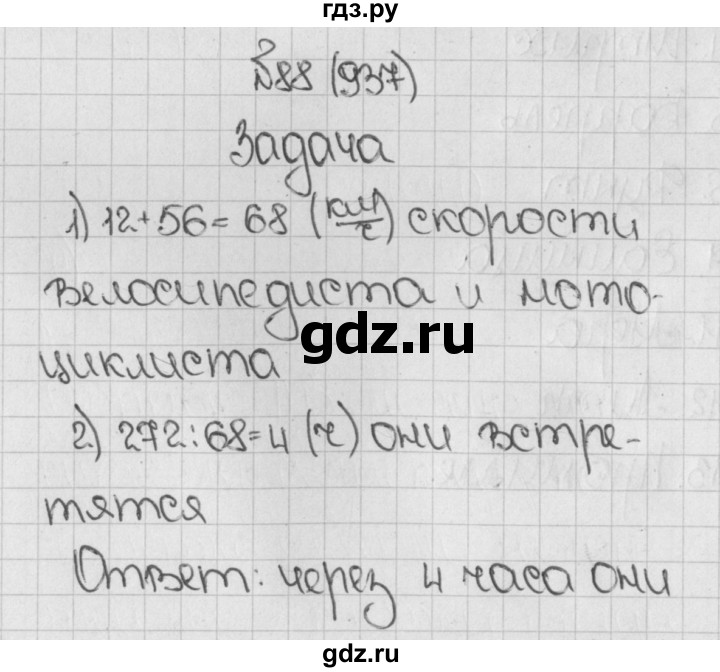 гдз.ру
№88 (937)
Задача
1) 12+56=68 (км/ч) скорости
велосипедиста и мото-
gdz.ru
циклиста
2) 272:68=4 (ч) они встре-
тятся
Ответ: через 4 часа они
gdz.ru